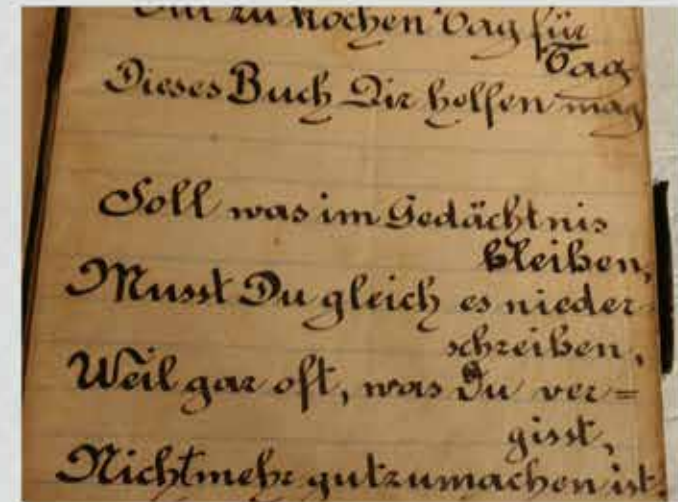 Gut zu kochen Tag für
Tag
Dieses Buch Dir helfen mag
Soll was im Gedächtnis
bleiben,
Musst Du gleich es nieder-
schreiben,
Weil gar oft, was Du ver=
gisst,
Nicht mehr gutzumachen ist.